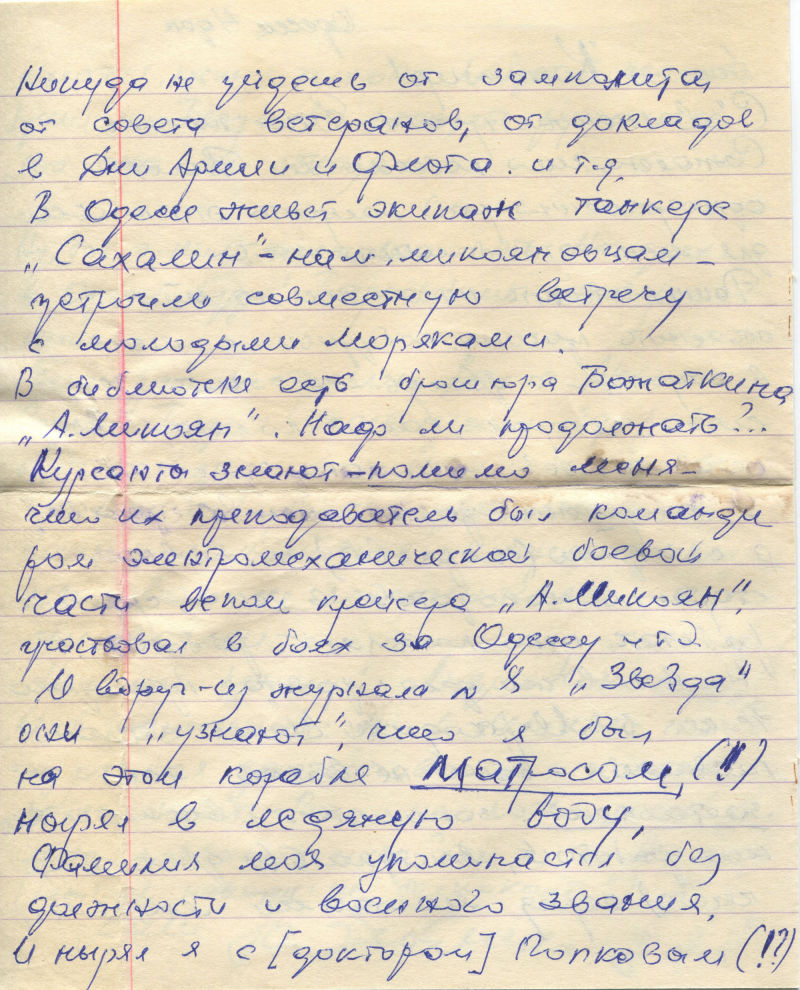 Никуда не уйдешь от замполита,
от совета ветеранов, от докладов
в Дни Армии и Флота. и т.д.
В Одессе живет экипаж танкера
„Сахалин" - нам, микояновцам -
устроили совместную встречу
с молодыми моряками.
В библиотеке есть брошюра Божаткина
„А. Микоян". Надо ли продолжать?..
Курсанты знают - помимо меня -
что их преподаватель был команди
ром электромеханической боевой
части вспом крейсера „А. Микоян",
участвовал в боях за Одессу и т.д.
И вдруг - из журнала № 8 „Звезда"
они „узнают", что я был
на этом корабле матросом, (!!)
нырял в ледяную воду,
Фамилия моя упоминается без
должности и военного звания,
И нырял я с [доктором] Попковым (!?)